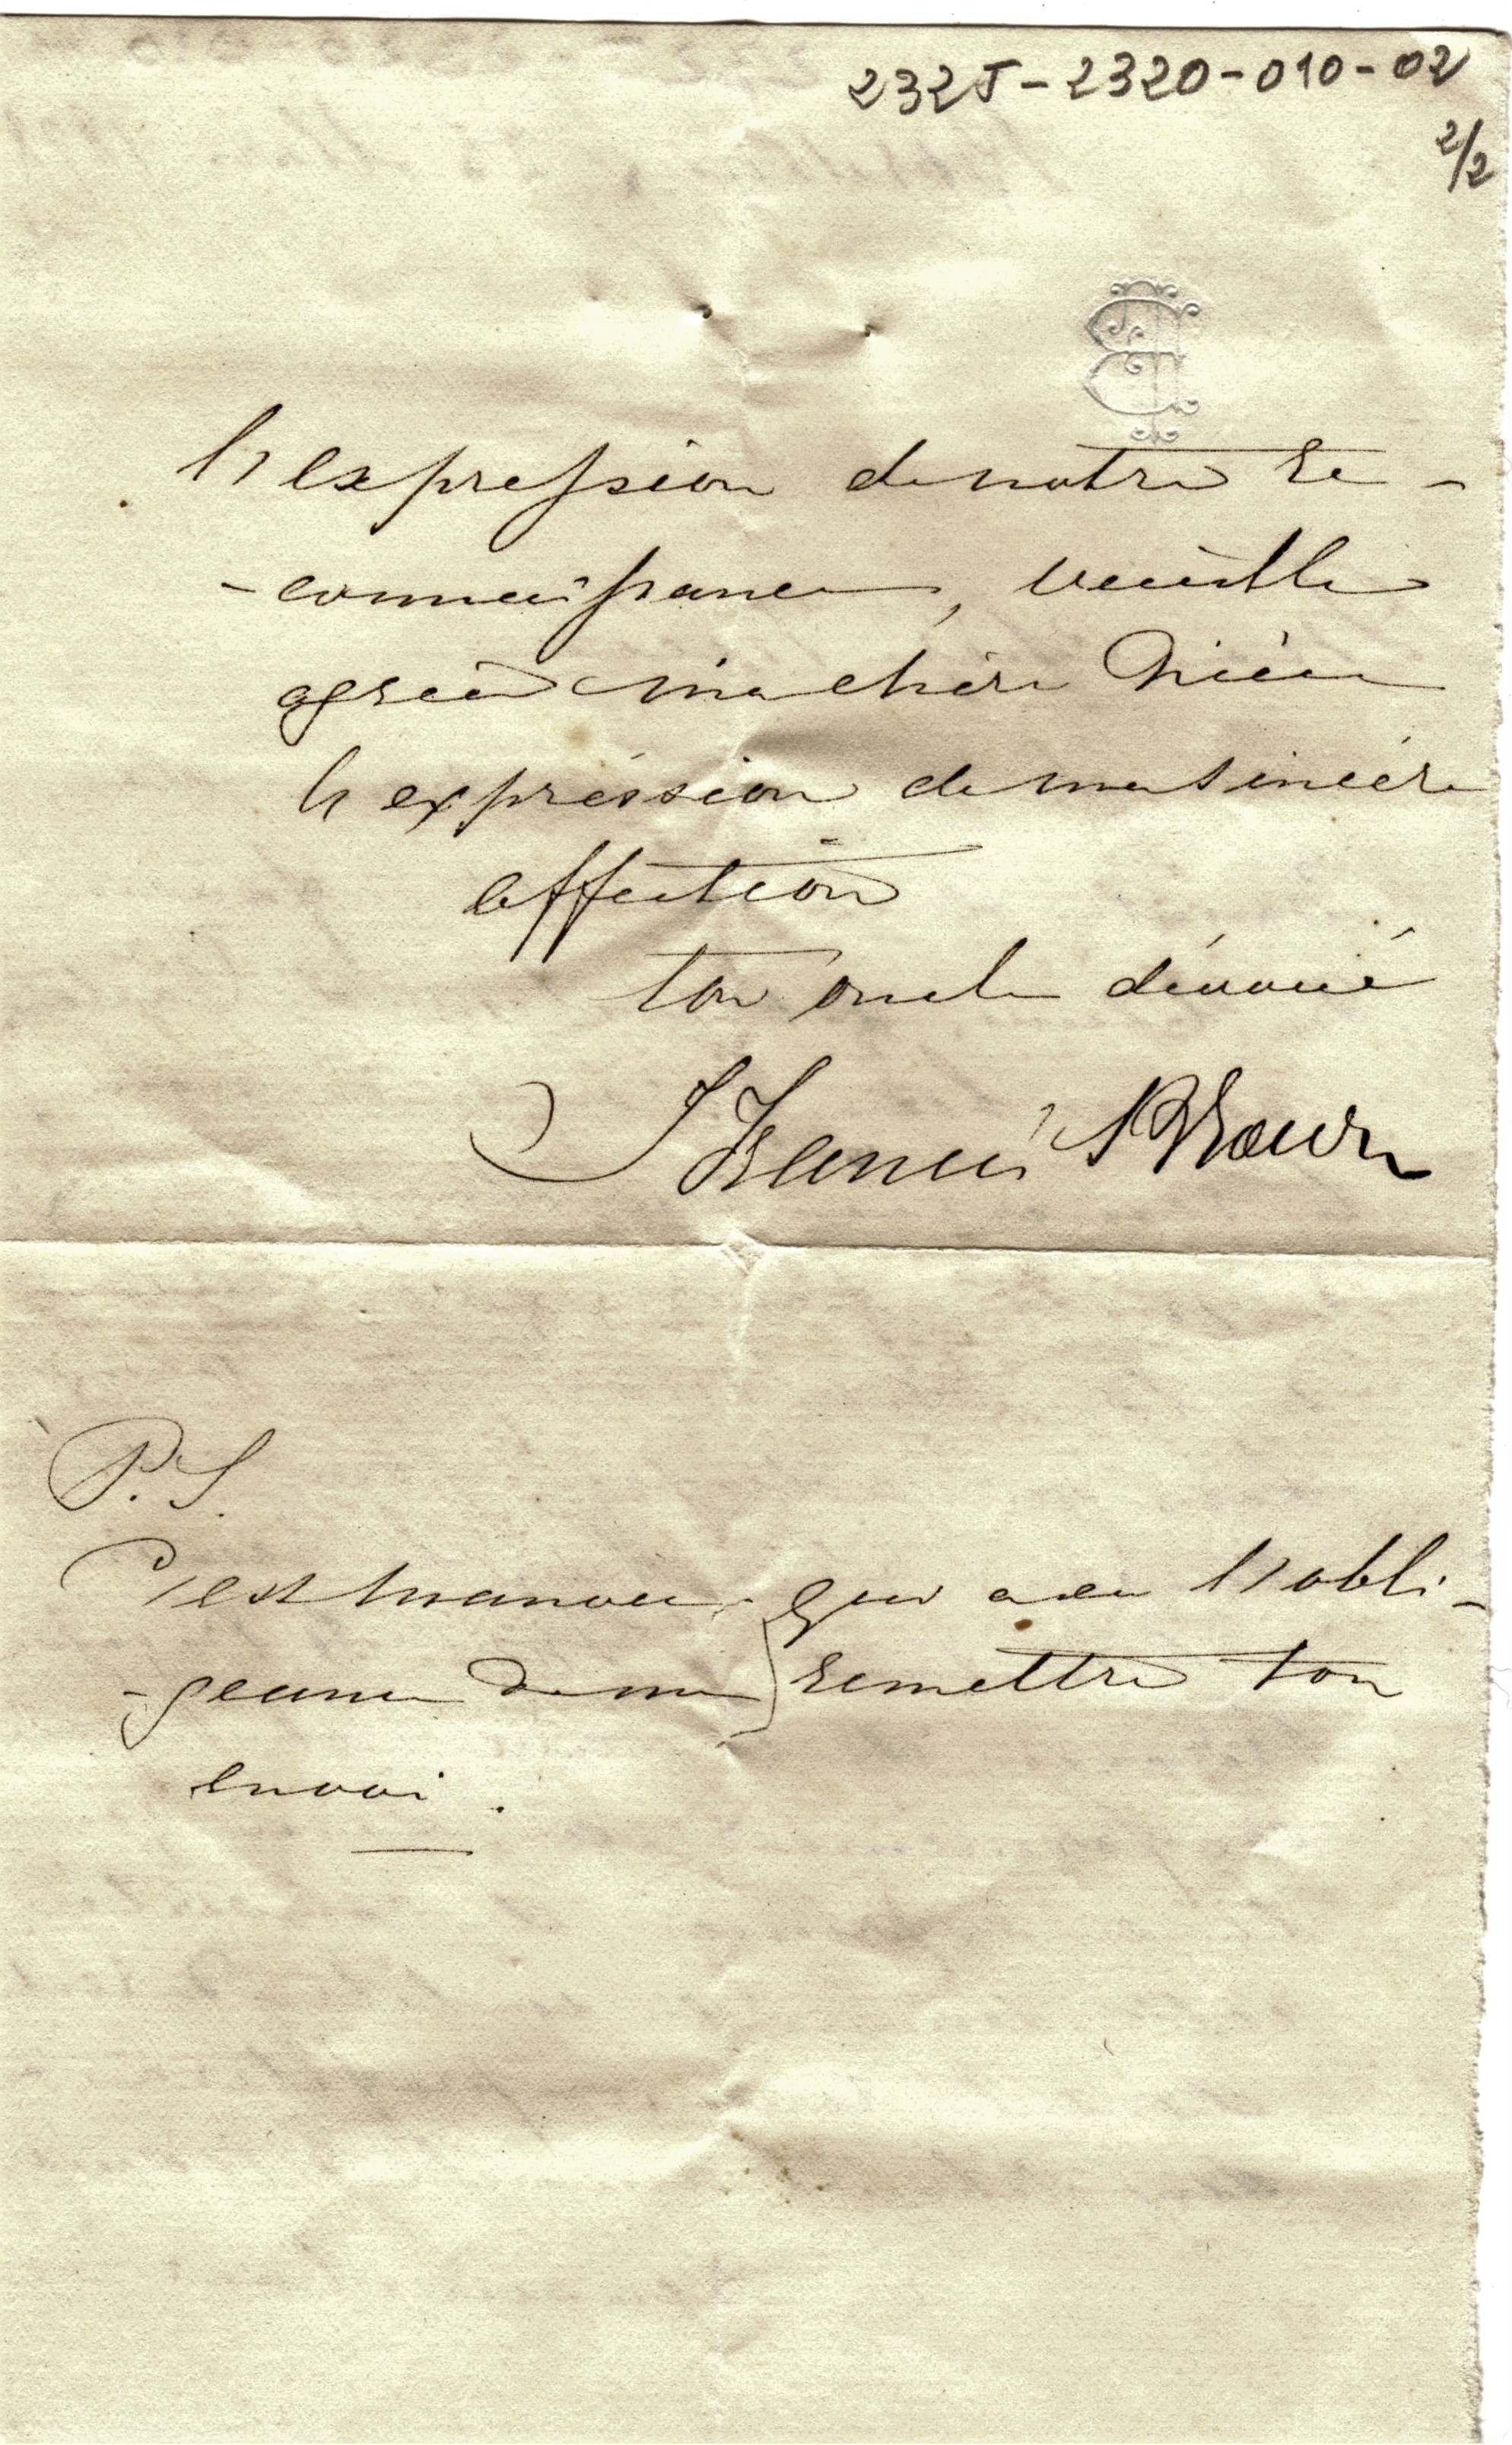 232J-2320-010-02
2/2
l'expression de notre re-
-connaissance, veuille
agréer ma chère Nièce
l'expréssion de ma sincére
affection
ton oncle dévoué
Francis
P.S.
C'est qui a eu l'obli-
-geance de me remettre ton
envoi.